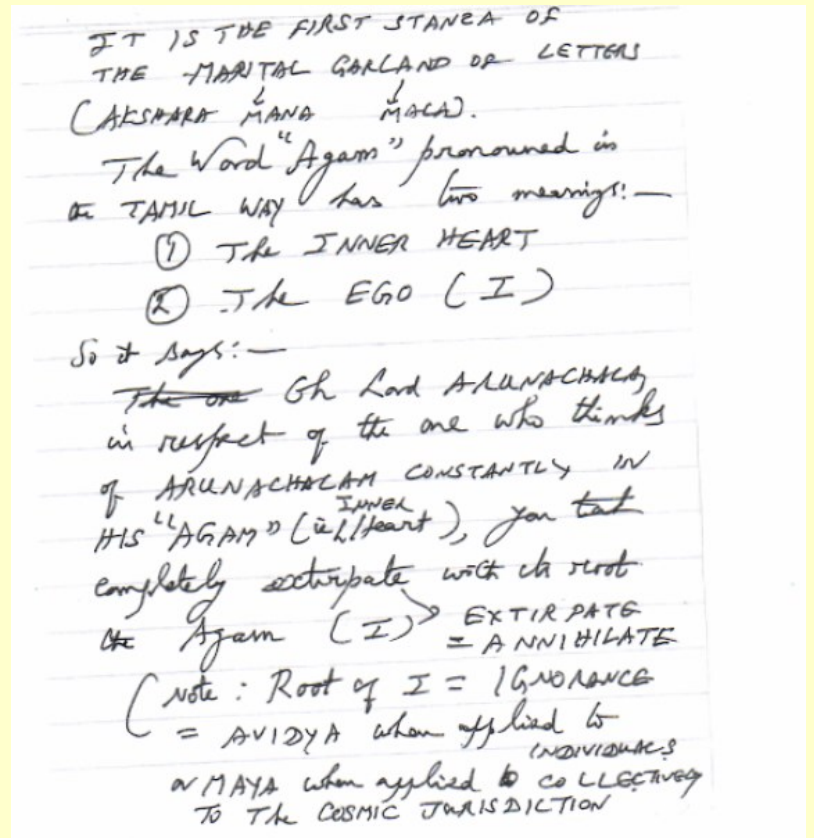 IT IS THE FIRST STANZA OF
THE MARITAL GARLAND OF LETTERS
(AKSHARA MANA MALA).
The Word "Agam" pronounced in
the TAMIL WAY has two meanings:—
① The INNER HEART
② The EGO (I)
So it says:—
The one Oh Lord ARUNACHALA,
in respect of the one who thinks
of ARUNACHALAM CONSTANTLY IN
INNER
HIS "AGAM" (ie Heart), you
completely extirpate with its root
the Agam (I) EXTIRPATE
= ANNIHILATE
(Note: Root of I = IGNORANCE
= AVIDYA when applied to
INDIVIDUALS
or MAYA when applied to COLLECTIVELY
TO The COSMIC JURISDICTION